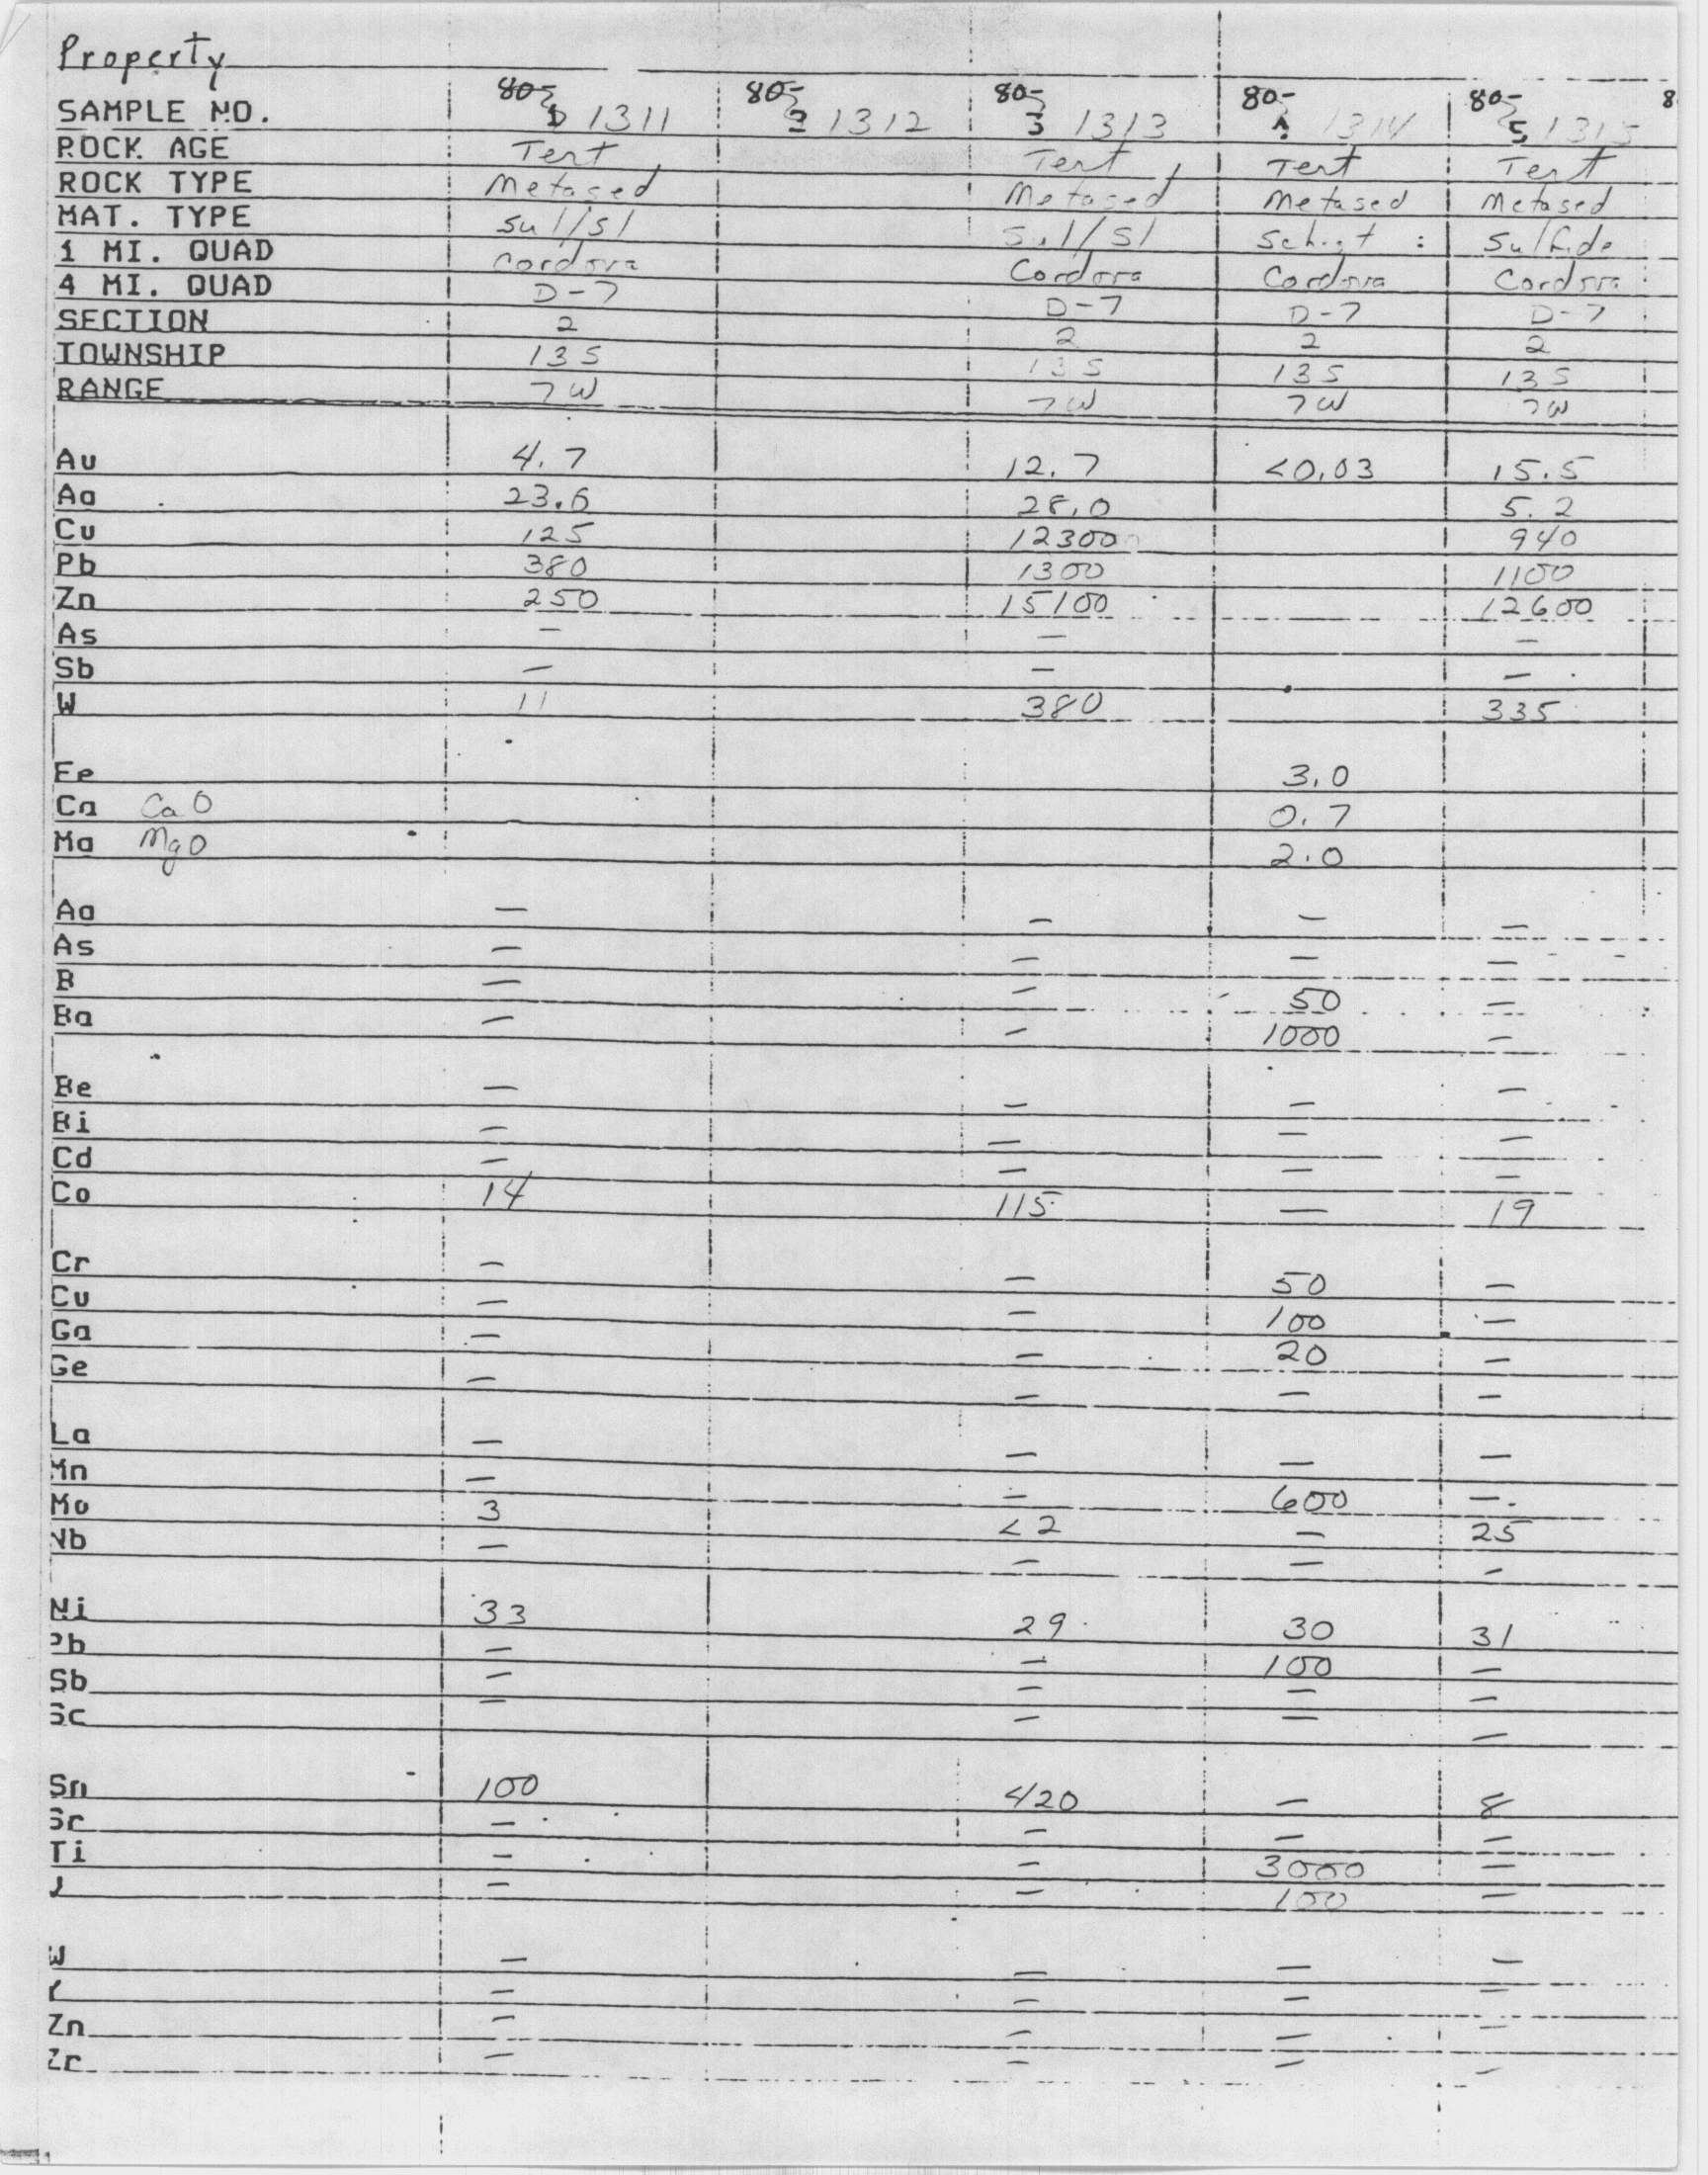 Property
80- 80- 80- 80- 80- 8
SAMPLE NO. 1 1311 2 1312 3 1313 1314 5 1315
ROCK AGE Tert Tert Tert Tert
ROCK TYPE Metased Metased Metased Metased
MAT. TYPE Sul/Sl Sul/Sl Schist Sulfide
1 MI. QUAD Cordova Cordova Cordova Cordova
4 MI. QUAD D-7 D-7 D-7 D-7
SECTION 2 2 2 2
TOWNSHIP 13S 13S 13S 13S
RANGE 7W 7W 7W 7W
Au 4.7 12.7 <0.03 15.5
Ag 23.6 28.0 5.2
Cu 125 12300 940
Pb 380 1300 1100
Zn 250 15100 12600
As - - -
Sb - - -
W 11 380 335
Fe 3.0
Ca CaO 0.7
Mg MgO 2.0
Ag - - - -
As - - - -
B - - 50 -
Ba - - 1000 -
Be - - - -
Bi - - - -
Cd - - - -
Co 14 115 - 19
Cr - - 50 -
Cu - - 100 -
Ga - - 20 -
Ge - - - -
La - - - -
Mn - - 600 -
Mo 3 <2 - 25
Nb - - - -
Ni 33 29 30 31
Pb - - 100 -
Sb - - - -
Sc - - - -
Sn 100 420 - 8
Sr - - - -
Ti - - 3000 -
V - - 100 -
W - - - -
Y - - - -
Zn - - - -
Zr - - - -